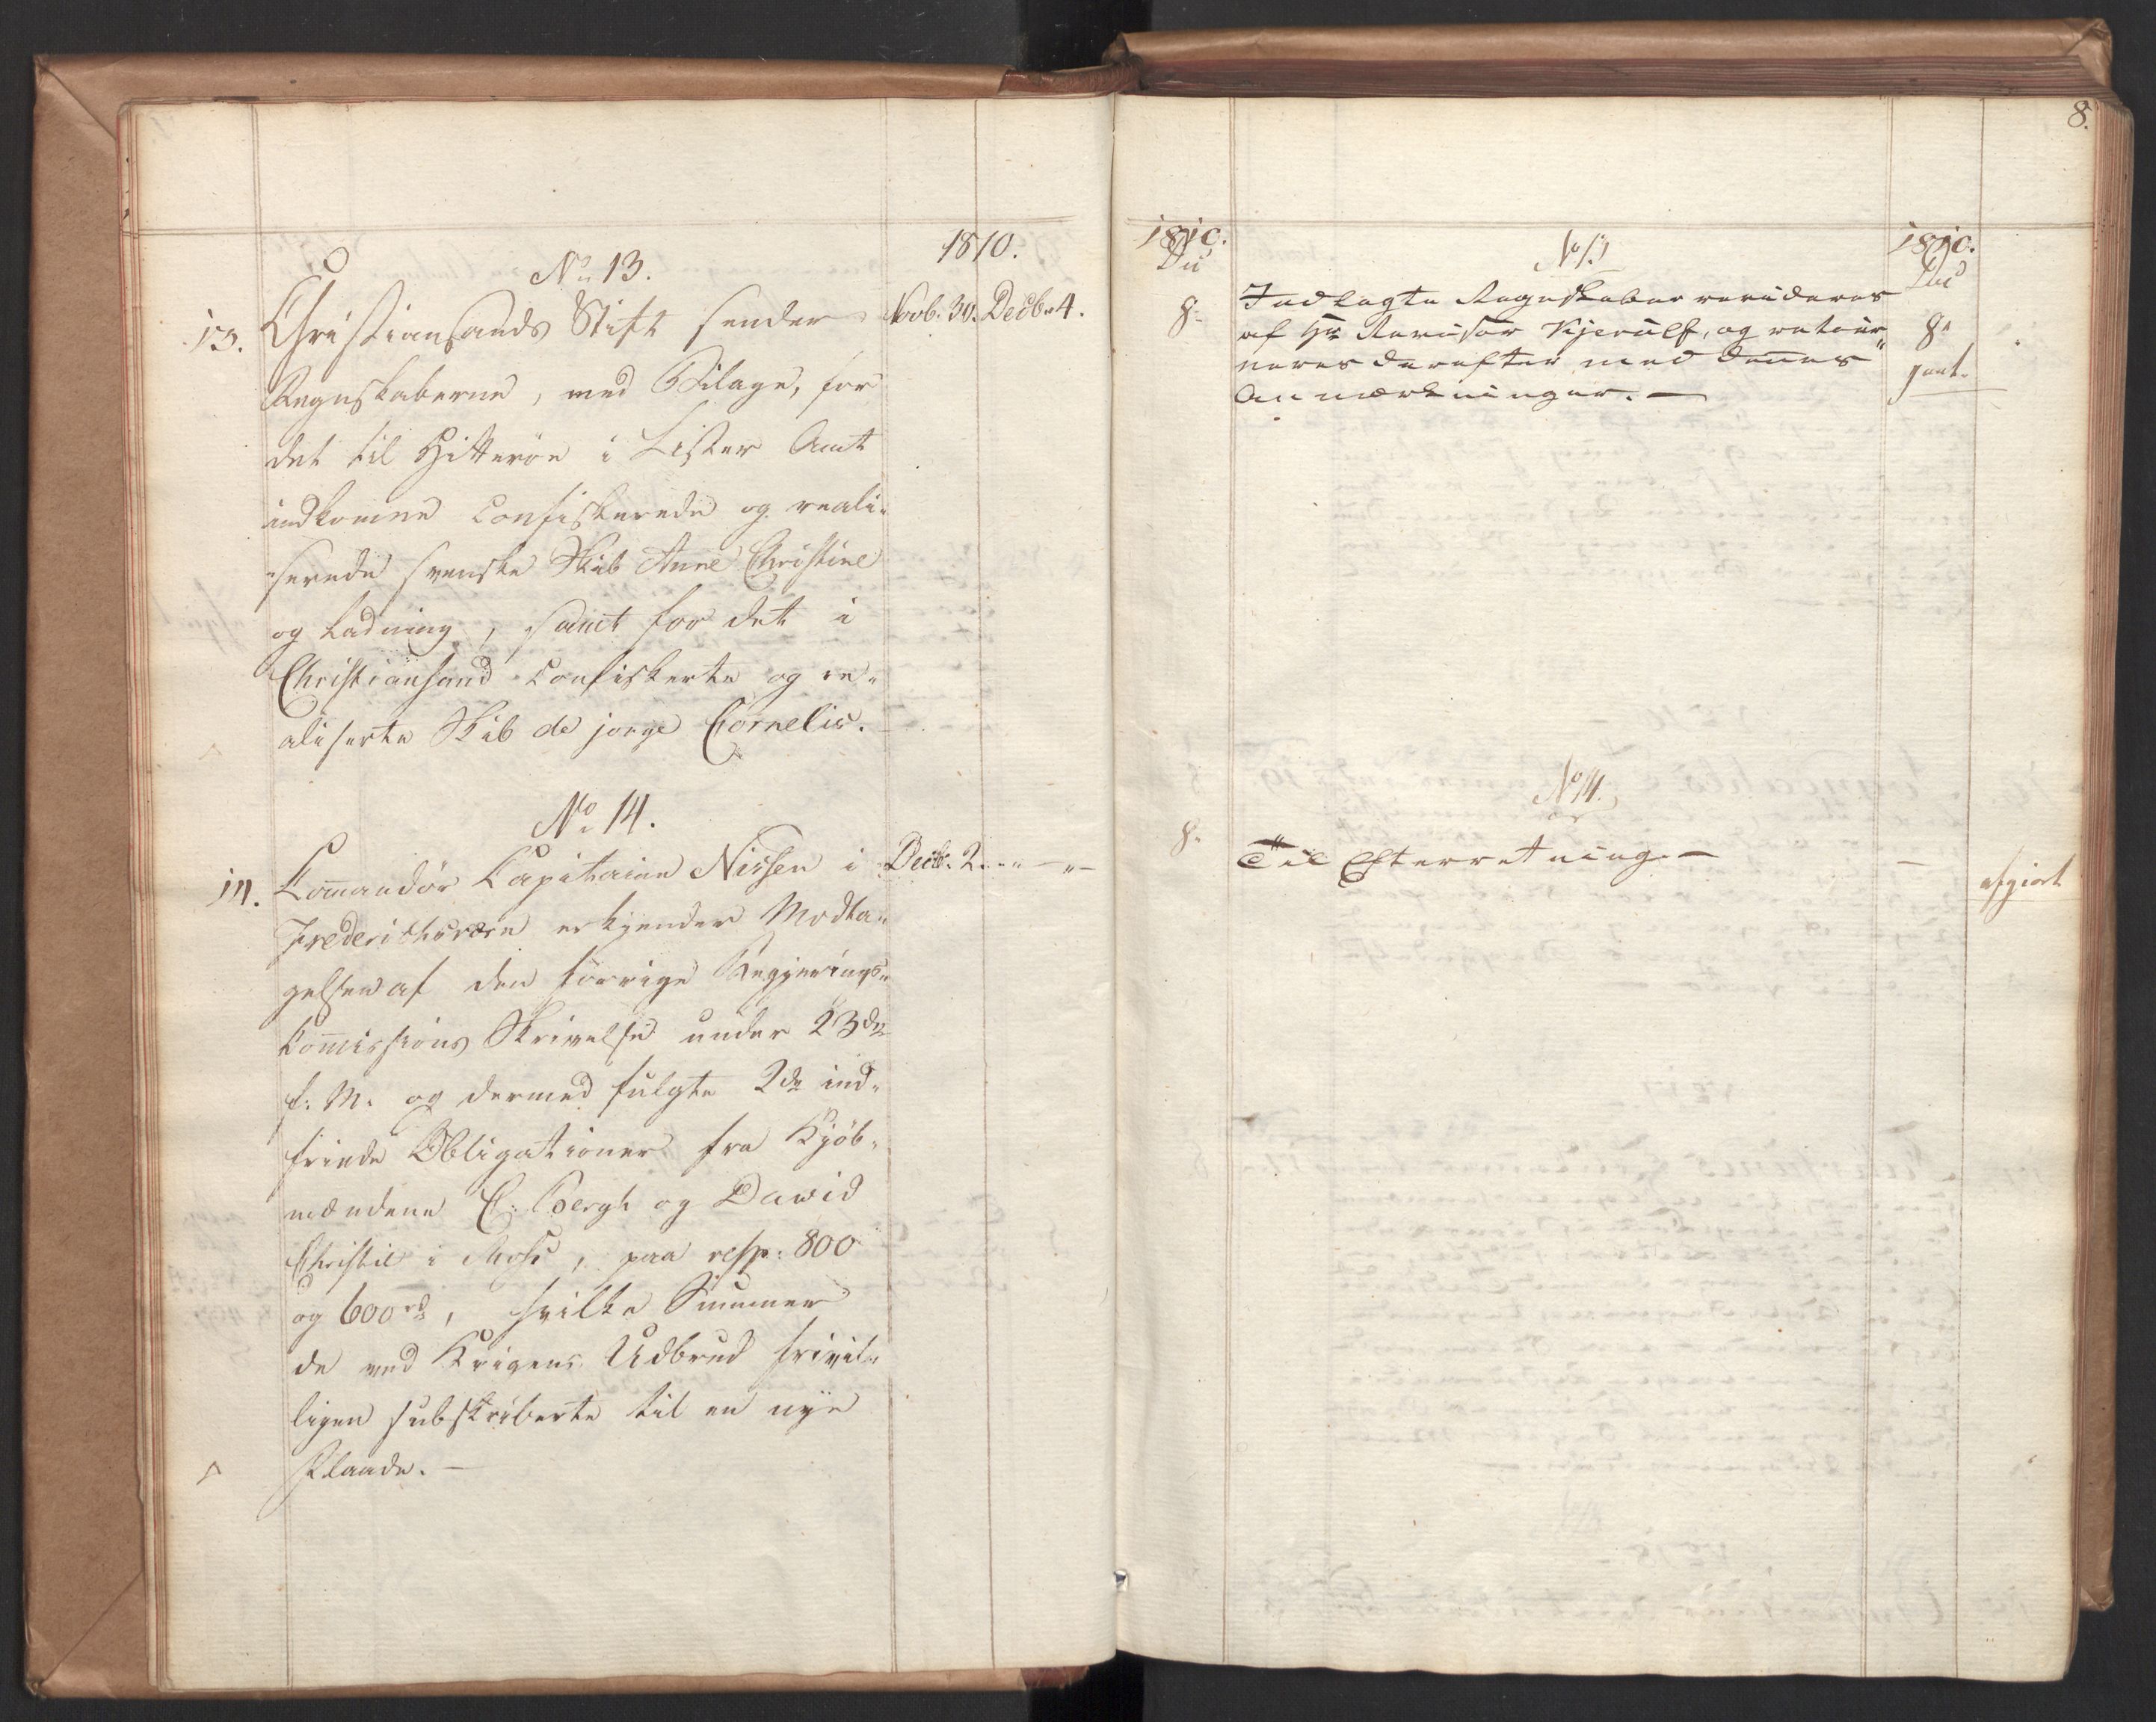 1810.
No 13.
13. Christiansands Stift sender Novb. 30. Decbr 4.
Regnskaberne, med Bilage, for
det til Hitterøe i Lister Amt
indkomne confiskerede og reali-
serede svenske Skib Anne Christine
og Ladning, samt for det i
Christiansand confiskerte og re-
aliserte Skib de jonge Cornelis.
No 14.
14. Commandør Capitaine Nissen i Decbr. 2. " — " —
Frederichsværn erkjender Modta-
gelsen af den forrige Regjerings-
Commissions Skrivelse under 23de
f. M. og dermed fulgte 2de ind-
friede Obligationer fra Kjøb-
mændene C. Bergh og David
Christie i Moss, paa resp. 800
og 600 rd, hvilke Summer
de ved Krigens Udbrud frivil-
ligen subskriberte til en nye
Flaade. —
8.
1810.
1810.
No 13
Dec
Dec
8.
Indlagte Regnskaber revideres
af Hr Revisor Kjerulf, og retour-
neres derefter med dennes
Anmærkninger. —
8.
No 14.
8.
Til Efterretning. —
—
afgiort